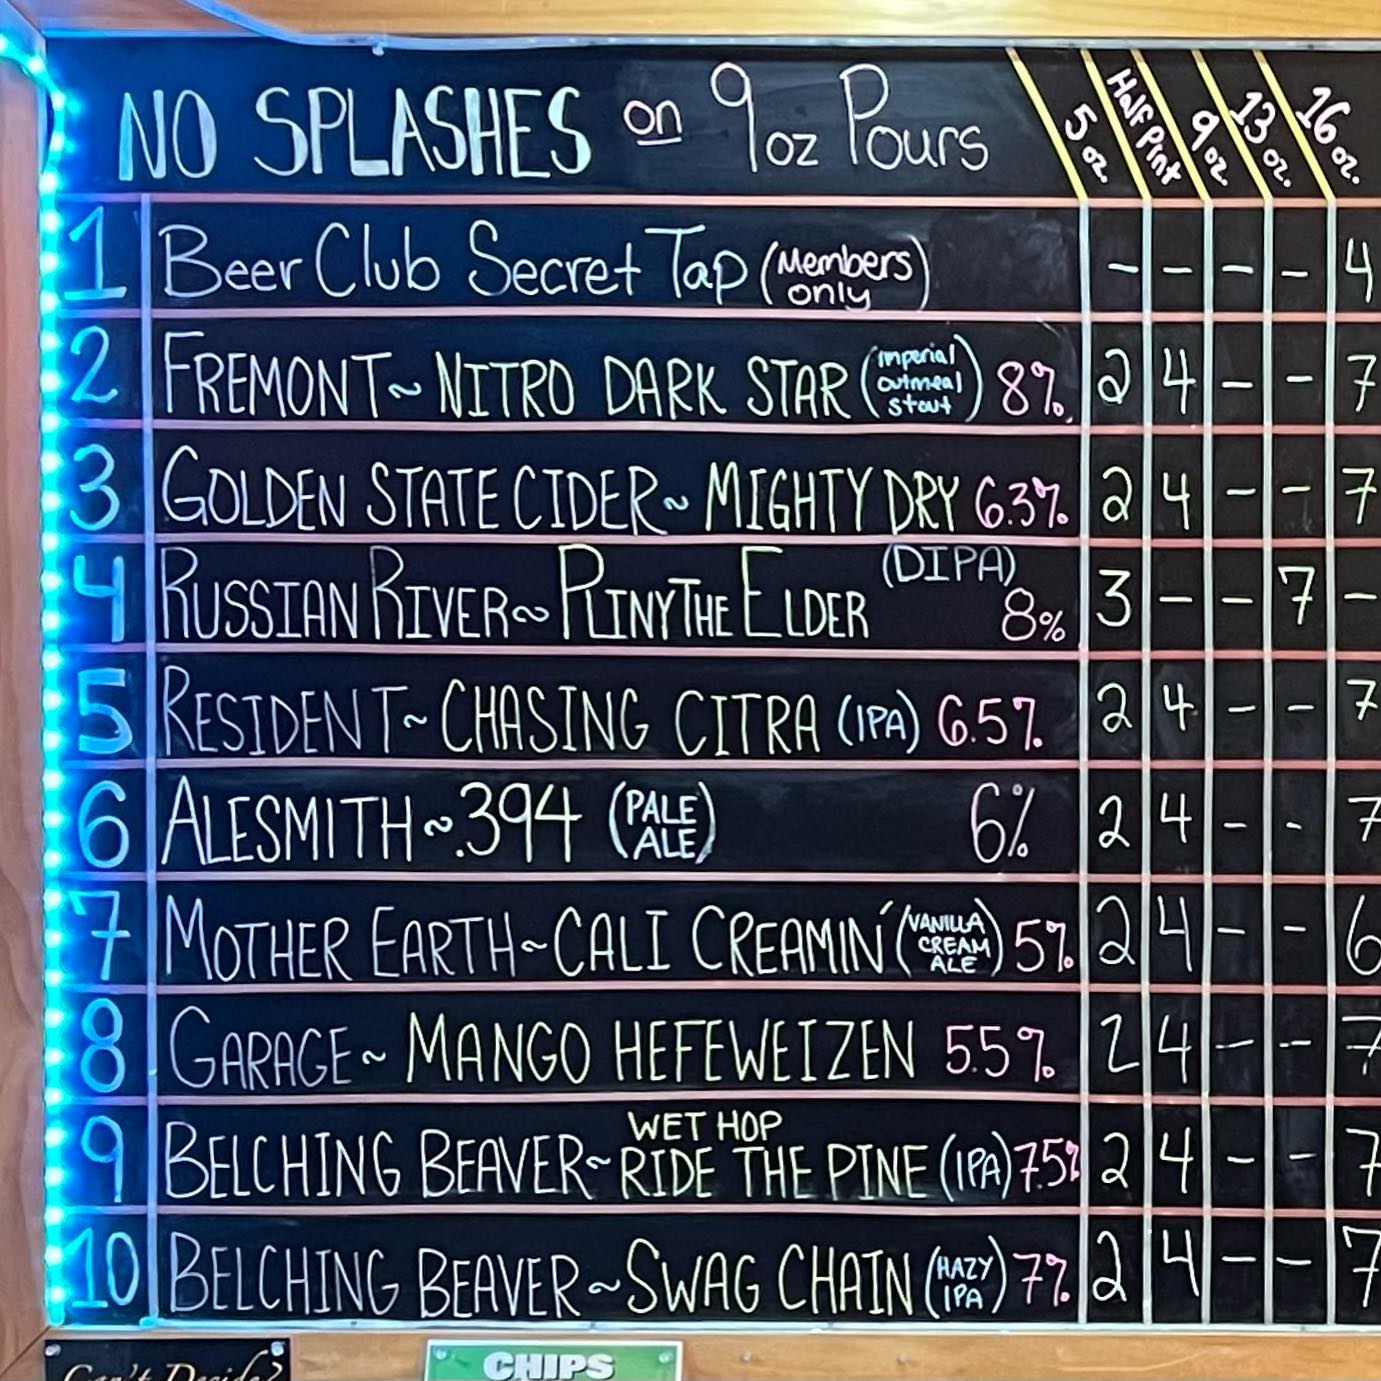 NO SPLASHES on 9oz Pours 5 oz. Half Pint 9 oz. 13 oz. 16 oz.
1 Beer Club Secret Tap (Members only) - - - - 4
2 FREMONT ~ NITRO DARK STAR (imperial oatmeal stout) 8% 2 4 - - 7
3 GOLDEN STATE CIDER ~ MIGHTY DRY 6.3% 2 4 - - 7
4 RUSSIAN RIVER ~ PLINY THE ELDER (DIPA) 8% 3 - - 7 -
5 RESIDENT ~ CHASING CITRA (IPA) 6.5% 2 4 - - 7
6 ALESMITH ~ .394 (PALE ALE) 6% 2 4 - - 7
7 MOTHER EARTH ~ CALI CREAMIN' (VANILLA CREAM ALE) 5% 2 4 - - 6
8 GARAGE ~ MANGO HEFEWEIZEN 5.5% 2 4 - - 7
9 BELCHING BEAVER ~ WET HOP RIDE THE PINE (IPA) 7.5% 2 4 - - 7
10 BELCHING BEAVER ~ SWAG CHAIN (HAZY IPA) 7% 2 4 - - 7
Can't Decide?
CHIPS